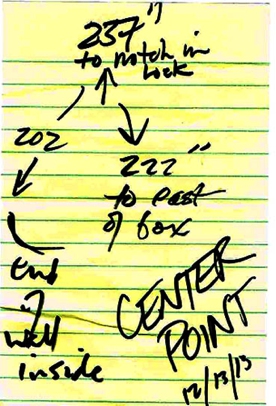 237"
to notch in
202
222"
to east
of box
End
of
well
inside
CENTER
POINT
12/13/13